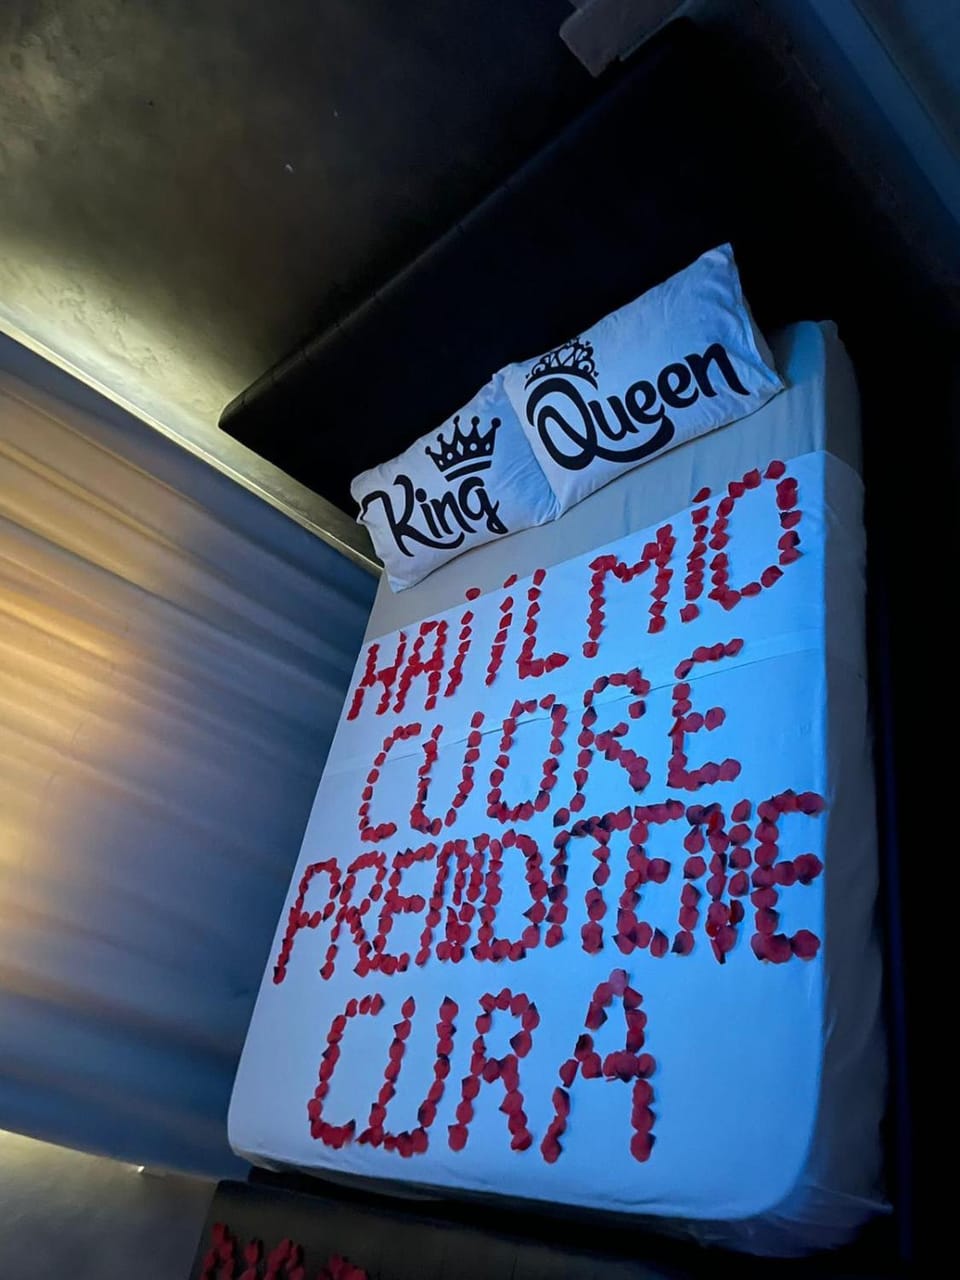 King
Queen
HAI IL MIO
CUORE
PRENDITENE
CURA